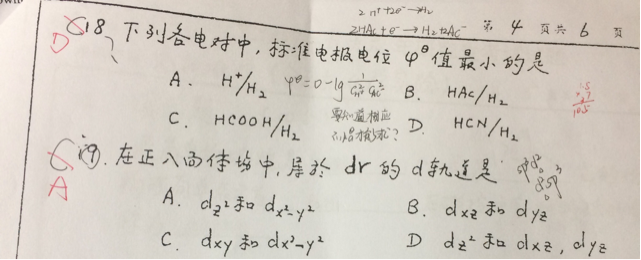 2H⁺+2e⁻→H₂
2HAc+e⁻→H₂+2Ac⁻ 第 4 页 共 6 页
18、下列各电对中,标准电极电位 φ^θ 值最小的是
D
A. H⁺/H₂ φ^θ=0-lg B. HAc/H₂
C. HCOOH/H₂ D. HCN/H₂
19. 在正八面体场中,属於 dr 的 d轨道是
A
A. d_z² 和 d_x²-y² B. d_xz 和 d_yz
C. d_xy 和 d_x²-y² D d_z² 和 d_xz, d_yz